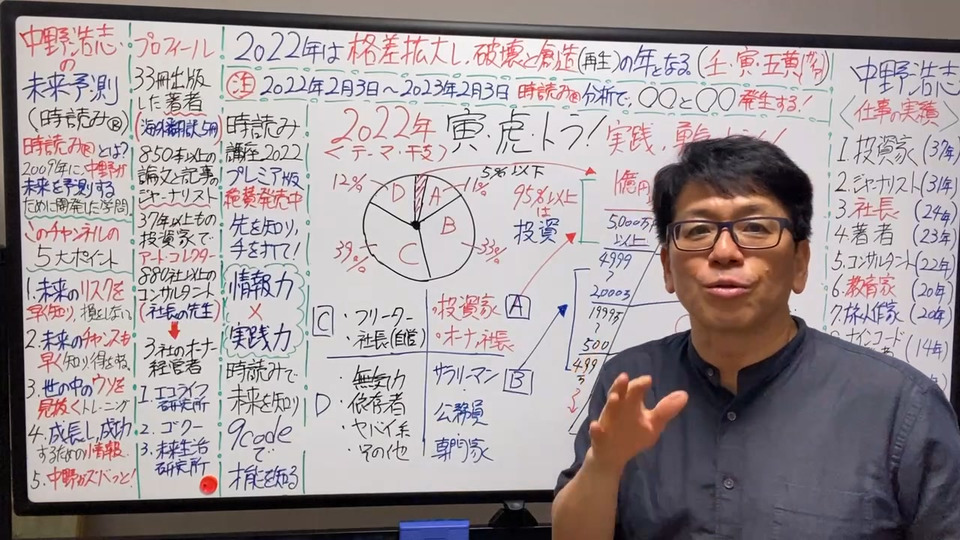 中野浩志
の
未来予測
(時読み®)
時読み®とは?
2009年に、中野が
未来を予測する
ために開発した学問
このチャンネルの
5大ポイント
1.未来のリスクを
早く知り、損をしない
2.未来のチャンスも
早く知り得する。
3.世の中のウソを
見抜くトレーニング
4.成長し、成功
するための情報
5.中野がズバッと!
プロフィール
33冊出版
した著者
(海外翻訳5冊)
850本以上の
論文と記事の
ジャーナリスト
37年以上もの
投資家で
アートコレクター
880社以上の
コンサルタント
(社長の先生)
3社のオーナー
経営者
1.エコライフ
研究所
2.ゴクー
3.未来生活
研究所
2022年は格差拡大し、破壊と創造(再生)の年となる(壬・寅・五黄
注 2022年2月3日~2023年2月3日 時読み®分析で、〇〇と〇〇発生する!
時読み
講座2022
プレミア版
絶賛発売中
先を知り、
手を打て!
情報力
×
実践力
時読みで
未来を知り
9codeで
才能を知る
2022年 寅・虎・トラ!実践、勇
<テーマ・干支>
5%以下
12% D A 11%
B
39% C 33%
95%以上
は
投資
1億円
5,000万
以上
4999
~
2000万
1999万
~
500
499
C
・フリーター
・社長(自営)
・投資家
・オーナー社長
A
D
・無気力
・依存者
・ヤバイ系
・その他
サラリーマン
B
公務員
専門家
中野浩志
<仕事の実績>
1.投資家(37年)
2.ジャーナリスト(31年)
3.社長(24年)
4.著者(23年)
5.コンサルタント(22年)
6.教育家(20年)
7.旅人作家(20年)
ナインコード
(14年)